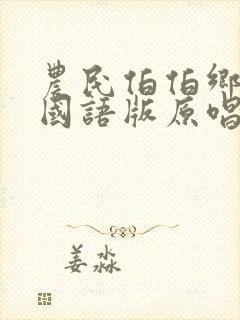 農民伯伯鄉
國語版原唱
姜淼